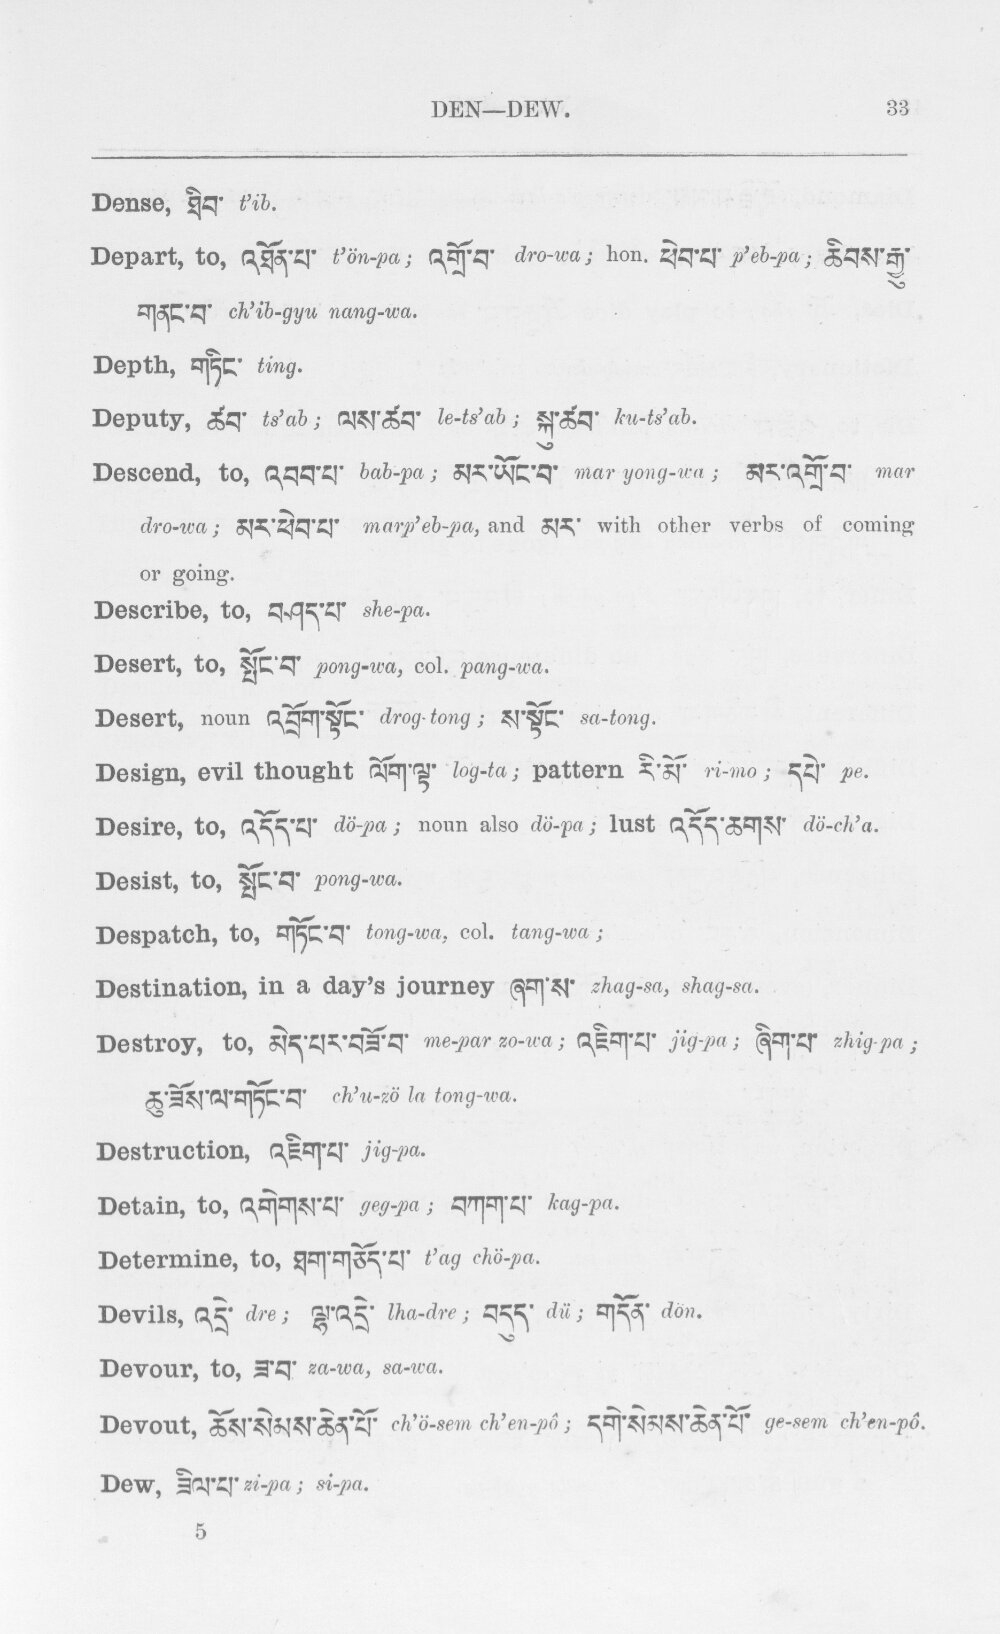 DEN—DEW. 33
Dense, ཐིབ་ t'ib.
Depart, to, འཐོན་པ་ t'ön-pa; འགྲོ་བ་ dro-wa; hon. ཕེབ་པ་ p'eb-pa; ཆིབས་རྒྱུ་
གནང་བ་ ch'ib-gyu nang-wa.
Depth, གཏིང་ ting.
Deputy, ཚབ་ ts'ab; ལས་ཚབ་ le-ts'ab; སྐུ་ཚབ་ ku-ts'ab.
Descend, to, འབབ་པ་ bab-pa; མར་ཡོང་བ་ mar yong-wa; མར་འགྲོ་བ་ mar
dro-wa; མར་ཕེབ་པ་ marp'eb-pa, and མར་ with other verbs of coming
or going.
Describe, to, བཤད་པ་ she-pa.
Desert, to, སྤོང་བ་ pong-wa, col. pang-wa.
Desert, noun འབྲོག་སྟོང་ drog-tong; ས་སྟོང་ sa-tong.
Design, evil thought ལོག་ལྟ་ log-ta; pattern རི་མོ་ ri-mo; དཔེ་ pe.
Desire, to, འདོད་པ་ dö-pa; noun also dö-pa; lust འདོད་ཆགས་ dö-ch'a.
Desist, to, སྤོང་བ་ pong-wa.
Despatch, to, གཏོང་བ་ tong-wa, col. tang-wa;
Destination, in a day's journey ཞག་ས་ zhag-sa, shag-sa.
Destroy, to, མེད་པར་བཟོ་བ་ me-par zo-wa; འཇིག་པ་ jig-pa; ཞིག་པ་ zhig-pa;
ཆུ་ཟོས་ལ་གཏོང་བ་ ch'u-zö la tong-wa.
Destruction, འཇིག་པ་ jig-pa.
Detain, to, འགེགས་པ་ geg-pa; བཀག་པ་ kag-pa.
Determine, to, ཐག་གཅོད་པ་ t'ag chö-pa.
Devils, འདྲེ་ dre; ལྷ་འདྲེ་ lha-dre; བདུད་ dü; གདོན་ dön.
Devour, to, ཟ་བ་ za-wa, sa-wa.
Devout, ཆོས་སེམས་ཆེན་པོ་ ch'ö-sem ch'en-pô; དགེ་སེམས་ཆེན་པོ་ ge-sem ch'en-pô.
Dew, ཟིལ་པ་ zi-pa; si-pa.
5